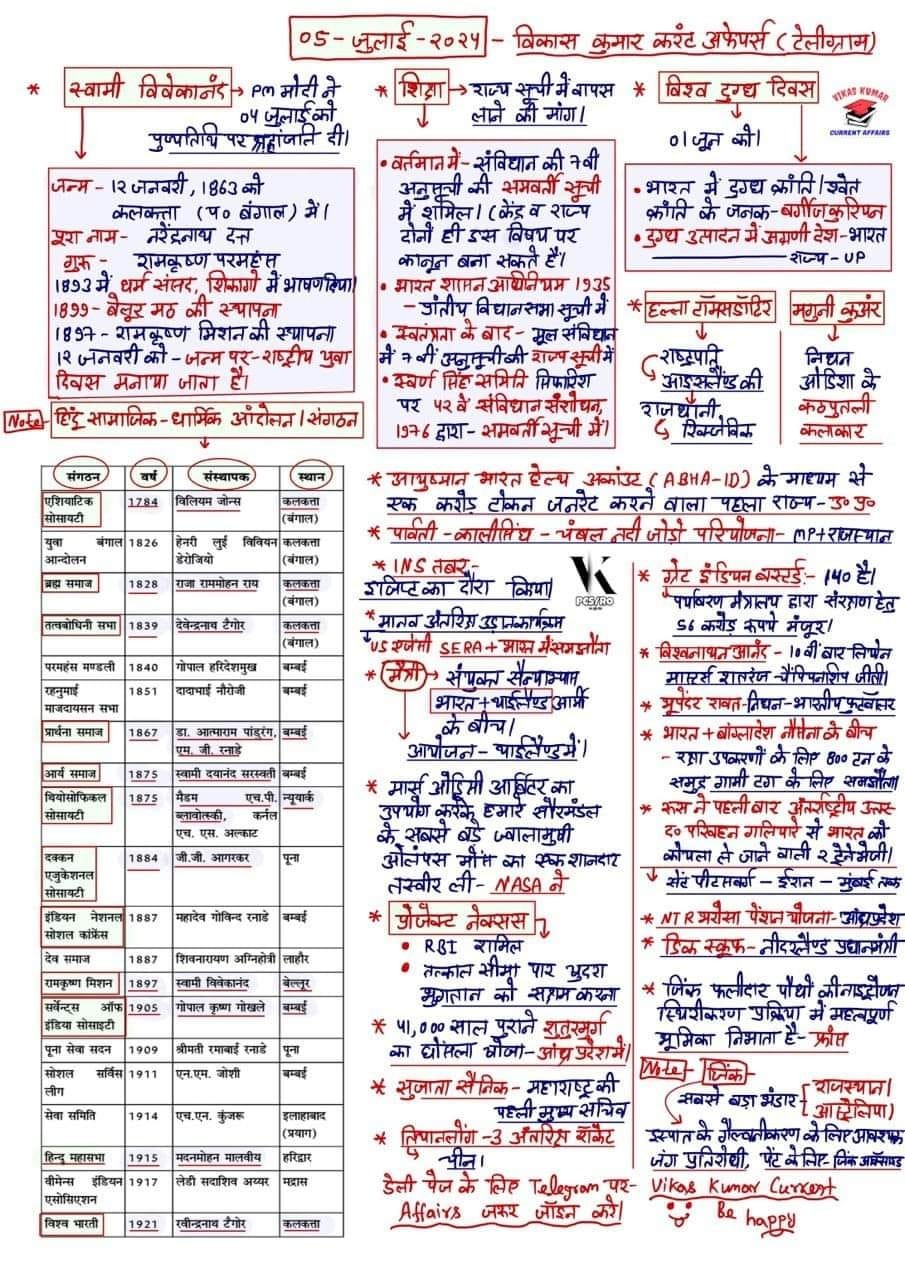 05-जुलाई-2024 - विकास कुमार करंट अफेयर्स (टेलीग्राम)
* स्वामी विवेकानंद → PM मोदी ने
04 जुलाई को
पुण्यतिथि पर श्रद्धांजति दी।
जन्म - 12 जनवरी, 1863 को
कलकत्ता (प० बंगाल) में।
पूरा नाम - नरेंद्रनाथ दत्त
गुरू - रामकृष्ण परमहंस
1893 में धर्म संसद, शिकागो में भाषण दिया।
1899 - बेलूर मठ की स्थापना
1897 - रामकृष्ण मिशन की स्थापना
12 जनवरी को - जन्म पर - राष्ट्रीय युवा
दिवस मनाया जाता है।
* शिक्षा → राज्य सूची में वापस
लाने की मांग।
• वर्तमान में - संविधान की 7वी
अनुसूची की समवर्ती सूची
में शामिल। (केंद्र व राज्य
दोनों ही इस विषय पर
कानून बना सकते है।
• भारत शासन अधिनियम 1935
- प्रांतीय विधानसभा सूची में
• स्वतंत्रता के बाद - मूल संविधान
में 7 वीं अनुसूची की राज्य सूची में
• स्वर्ण सिंह समिति सिफारिश
पर 42 वे संविधान संशोधन,
1976 द्वारा - समवर्ती सूची में।
* विश्व दुग्ध दिवस
01 जून को।
VIKAS KUMAR
CURRENT AFFAIRS
• भारत में दुग्ध क्रांति / श्वेत
क्रांति के जनक - वर्गीज कुरियन
• दुग्ध उत्पादन में अग्रणी देश - भारत
राज्य - UP
* हल्ला टॉमसडॉटिर
राष्ट्रपति
आइसलैंड की
राजधानी
रिक्जेविक
मगुनी कुअंर
निधन
ओडिशा के
कठपुतली
कलाकार
Note - हिंदू सामाजिक - धार्मिक आंदोलन / संगठन
संगठन वर्ष संस्थापक स्थान
एशियाटिक सोसायटी 1784 विलियम जोन्स कलकत्ता (बंगाल)
युवा बंगाल आन्दोलन 1826 हेनरी लुई विवियन डेरोजियो कलकत्ता (बंगाल)
ब्रह्म समाज 1828 राजा राममोहन राय कलकत्ता (बंगाल)
तत्वबोधिनी सभा 1839 देवेन्द्रनाथ टैगोर कलकत्ता (बंगाल)
परमहंस मण्डली 1840 गोपाल हरिदेशमुख बम्बई
रहनुमाई माजदायसन सभा 1851 दादाभाई नौरोजी बम्बई
प्रार्थना समाज 1867 डा. आत्माराम पांडुरंग, एम. जी. रनाडे बम्बई
आर्य समाज 1875 स्वामी दयानंद सरस्वती बम्बई
थियोसोफिकल सोसायटी 1875 मैडम एच.पी. ब्लावोत्स्की, कर्नल एच. एस. अल्काट न्यूयार्क
दक्कन एजुकेशनल सोसायटी 1884 जी.जी. आगरकर पूना
इंडियन नेशनल सोशल कांफ्रेंस 1887 महादेव गोविन्द रनाडे बम्बई
देव समाज 1887 शिवनारायण अग्निहोत्री लाहौर
रामकृष्ण मिशन 1897 स्वामी विवेकानंद बेल्लूर
सर्वेन्ट्स ऑफ इंडिया सोसाइटी 1905 गोपाल कृष्ण गोखले बम्बई
पूना सेवा सदन 1909 श्रीमती रमाबाई रनाडे पूना
सोशल सर्विस लीग 1911 एन.एम. जोशी बम्बई
सेवा समिति 1914 एच.एन. कुंजरू इलाहाबाद (प्रयाग)
हिन्दु महासभा 1915 मदनमोहन मालवीय हरिद्वार
वीमेन्स इंडियन एसोसिएशन 1917 लेडी सदाशिव अय्यर मद्रास
विश्व भारती 1921 रवीन्द्रनाथ टैगोर कलकत्ता
* आयुष्मान भारत हेल्थ अकाउंट (ABHA-ID) के माध्यम से
एक करोड़ टोकन जनरेट करने वाला पहला राज्य - उ० प्र०
* पार्वती - कालीसिंध - चंबल नदी जोड़ो परियोजना - MP+राजस्थान
* INS तबर -
इजिप्ट का दौरा किया।
PCS/RO
* मानव अंतरिक्ष उड़ान कार्यक्रम
US एजेंसी SERA + भारत में समझौता
* मैत्री → संयुक्त सैन्याभ्यास
भारत + थाईलैण्ड आर्मी
के बीच।
आयोजन - थाईलैण्ड में।
* मार्स ओडिसी आर्बिटर का
उपयोग करके हमारे सौरमंडल
के सबसे बडे ज्वालामुखी
ओलंपस मॉन्स का एक शानदार
तस्वीर ली - NASA ने
* प्रोजेक्ट नेक्सस
• RBI शामिल
• तत्काल सीमा पार खुदरा
भुगतान को सक्षम करना
* 41,000 साल पुराने शुतुरमुर्ग
का घोंसला खोजा - आंध्र प्रदेश में।
* सुजाता सौनिक - महाराष्ट्र की
पहली मुख्य सचिव
* तियानलोंग - 3 अंतरिक्ष रॉकेट
चीन।
डेली पेज के लिए Telegram पर -
Affairs जकर जॉइन करे।
* ग्रेट इंडियन बस्टर्ड: - 140 है।
पर्यावरण मंत्रालय द्वारा संरक्षण हेतु
56 करोड़ रूपये मंजूर।
* विश्वनाथन आनंद - 10 वी बार लियोन
मास्टर्स शतरंज - चैंपियनशिप जीती।
* भूपेंदर रावत - निधन - भारतीय फुटबॉलर
* भारत + बांग्लादेश नौसेना के बीच
- रक्षा उपकरणों के लिए 800 टन के
समुद्र गामी टग के लिए समझौता।
* रूस ने पहली बार अंतर्राष्ट्रीय उत्तर
द० परिवहन गलियारे से भारत को
कोयला ले जाने वाली 2 ट्रेने भेजी।
सेंट पीटर्सबर्ग - ईरान - मुंबई तक
* NTR भरोसा पेंशन योजना - आंध्रप्रदेश
* डिक स्कूफ - नीदरलैण्ड प्रधानमंत्री
* जिंक फलीदार पौधों की नाइट्रोजन
स्थिरीकरण प्रक्रिया में महत्वपूर्ण
भूमिका निभाता है - फ्रांस
Note - जिंक -
सबसे बड़ा भंडार - राजस्थान।
आस्ट्रेलिया।
इस्पात के गैल्वनीकरण के लिए आवश्यक
जंग प्रतिरोधी, पेंट के लिए - जिंक ऑक्साइड
Vikas Kumar Current
Be happy